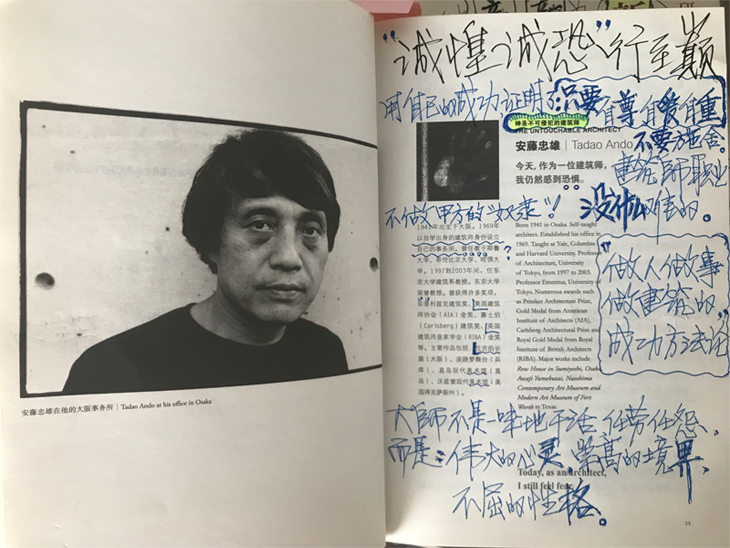 安藤忠雄在他的大阪事务所｜Tadao Ando at his office in Osaka
“诚惶诚恐”行至巅
用自己的成功证明了:只要自尊自爱自重
神圣不可侵犯的建筑师
THE UNTOUCHABLE ARCHITECT
安藤忠雄｜Tadao Ando
今天，作为一位建筑师，
我仍然感到恐惧。
建筑师职业
不做甲方的“奴隶”!
没什么
1941年出生于大阪。1969年
以自学出身的建筑师身份设立
自己的事务所。曾任教于耶鲁
大学、哥伦比亚大学、哈佛大
学。1997到2003年间，任东
京大学建筑系教授。东京大学
荣誉教授。曾获得许多奖项，
如普利兹克建筑奖、美国建筑
师协会（AIA）金奖、嘉士伯
（Carlsberg）建筑奖、英国
建筑师皇家学会（RIBA）金奖
等。主要作品包括：住吉的长
屋（大阪）、淡路梦舞台（兵
库）、直岛现代美术馆（直
岛）、沃兹堡现代美术馆（美
国得克萨斯州）。
Born 1941 in Osaka. Self-taught
architect. Established his office in
1969. Taught at Yale, Columbia
and Harvard University. Professor
of Architecture, University
of Tokyo, from 1997 to 2003.
Professor Emeritus, University of
Tokyo. Numerous awards such
as Pritzker Architecture Prize,
Gold Medal from American
Institute of Architects (AIA),
Carlsberg Architectural Prize and
Royal Gold Medal from Royal
Institute of British Architects
(RIBA). Major works include
Row House in Sumiyoshi, Osaka
Awaji Yumebutai, Naoshima
Contemporary Art Museum and
Modern Art Museum of Fort
Worth in Texas.
“做人做事
做建筑的”
成功方法论
大师不是一味地干活 任劳任怨，
而是：伟大的心灵，崇高的境界，
Today, as an architect,
I still feel fear.
不屈的性格。